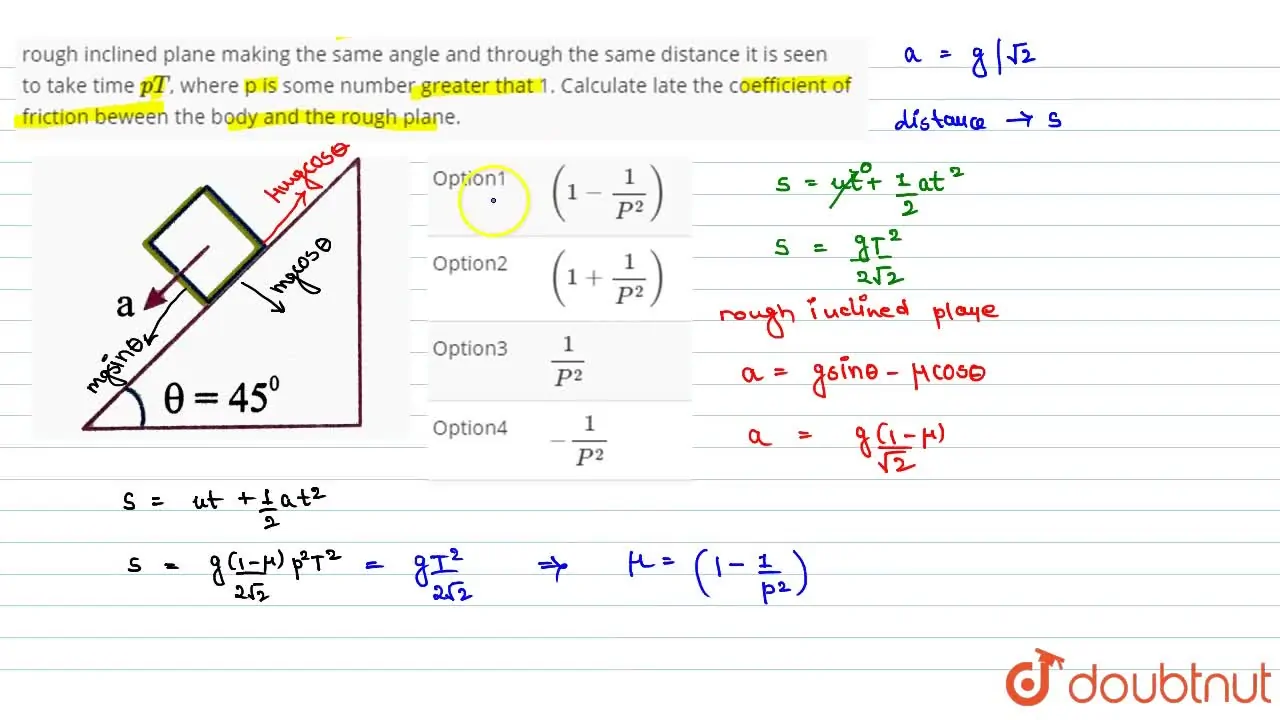 rough inclined plane making the same angle and through the same distance it is seen
to take time pT, where p is some number greater that 1. Calculate late the coefficient of
friction beween the body and the rough plane.
a = g/√2
distance → s
μmgcosθ
mgcosθ
a
mgsinθ
θ = 45⁰
Option1 (1 − 1/P²)
Option2 (1 + 1/P²)
Option3 1/P²
Option4 −1/P²
s = ut⁰ + 1/2 at²
s = gT²/2√2
rough inclined plane
a = gsinθ − μcosθ
a = g(1−μ)/√2
s = ut + 1/2 at²
s = g(1−μ)/2√2 p²T² = gT²/2√2 ⇒ μ = (1 − 1/p²)
doubtnut